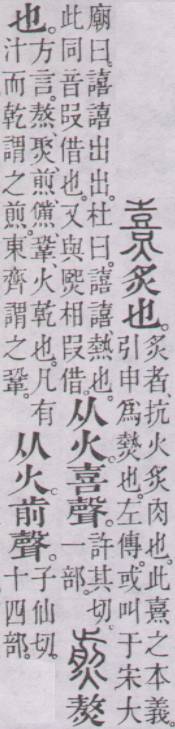 熹炙也。
炙者、抗火炙肉也。此熹之本義。
引申爲熱也。左傳。或叫于宋大
廟曰。譆譆出出。杜曰。譆譆、熱也。
此同音叚借也。又與熙相叚借。
从火。喜聲。
許其切。
一部。
煎熬
也。
方言。熬、聚、煎、㷶、鞏、火乾也。凡有
汁而乾謂之煎。東齊謂之鞏。
从火。前聲。
子仙切。
十四部。